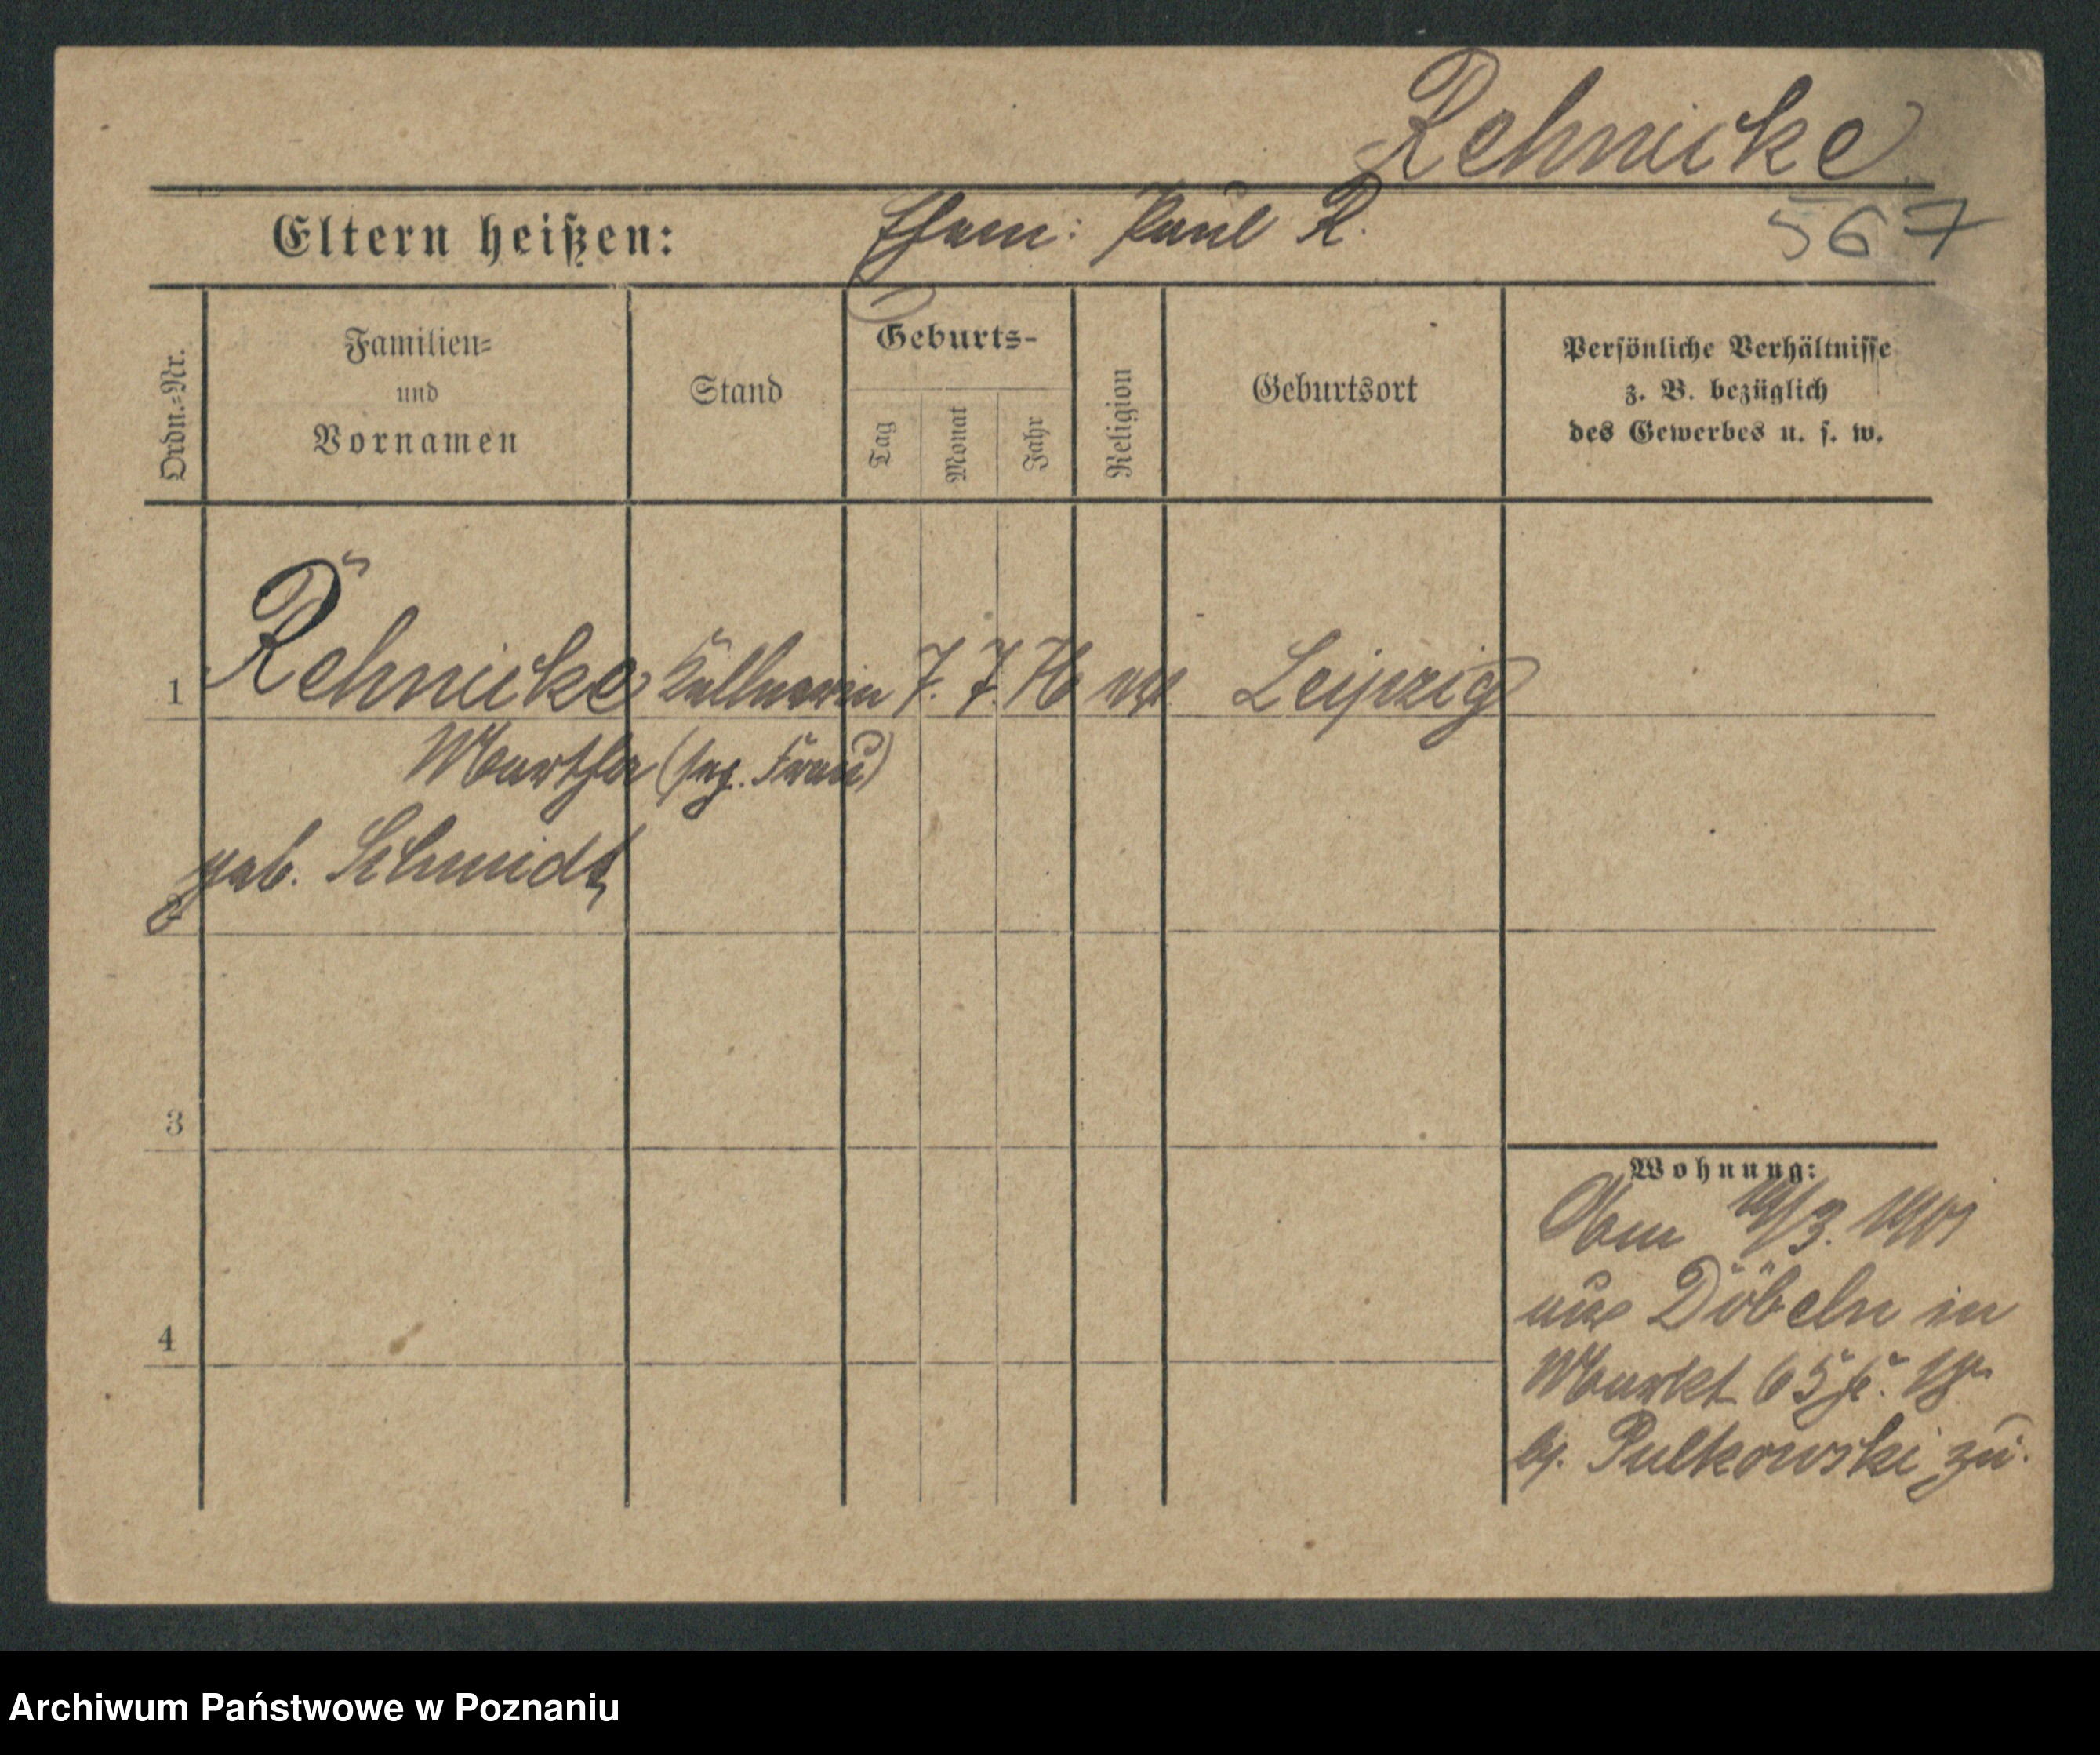 Rehnicke
Eltern heißen: Ehem: Paul R. 567
Ordn.=Nr.
Familien=
und
Vornamen
Stand
Geburts-
Tag
Monat
Jahr
Religion
Geburtsort
Persönliche Verhältnisse
z. B. bezüglich
des Gewerbes u. s. w.
1 Rehnicke Kellnerin 7. 7. 76 ev. Leipzig
Martha (sep. Frau)
geb. Schmidt
2
3
4
Wohnung:
Am 19/3. 1901
aus Döbeln in
Markt 65
bei Pulkowski zu.
Archiwum Państwowe w Poznaniu